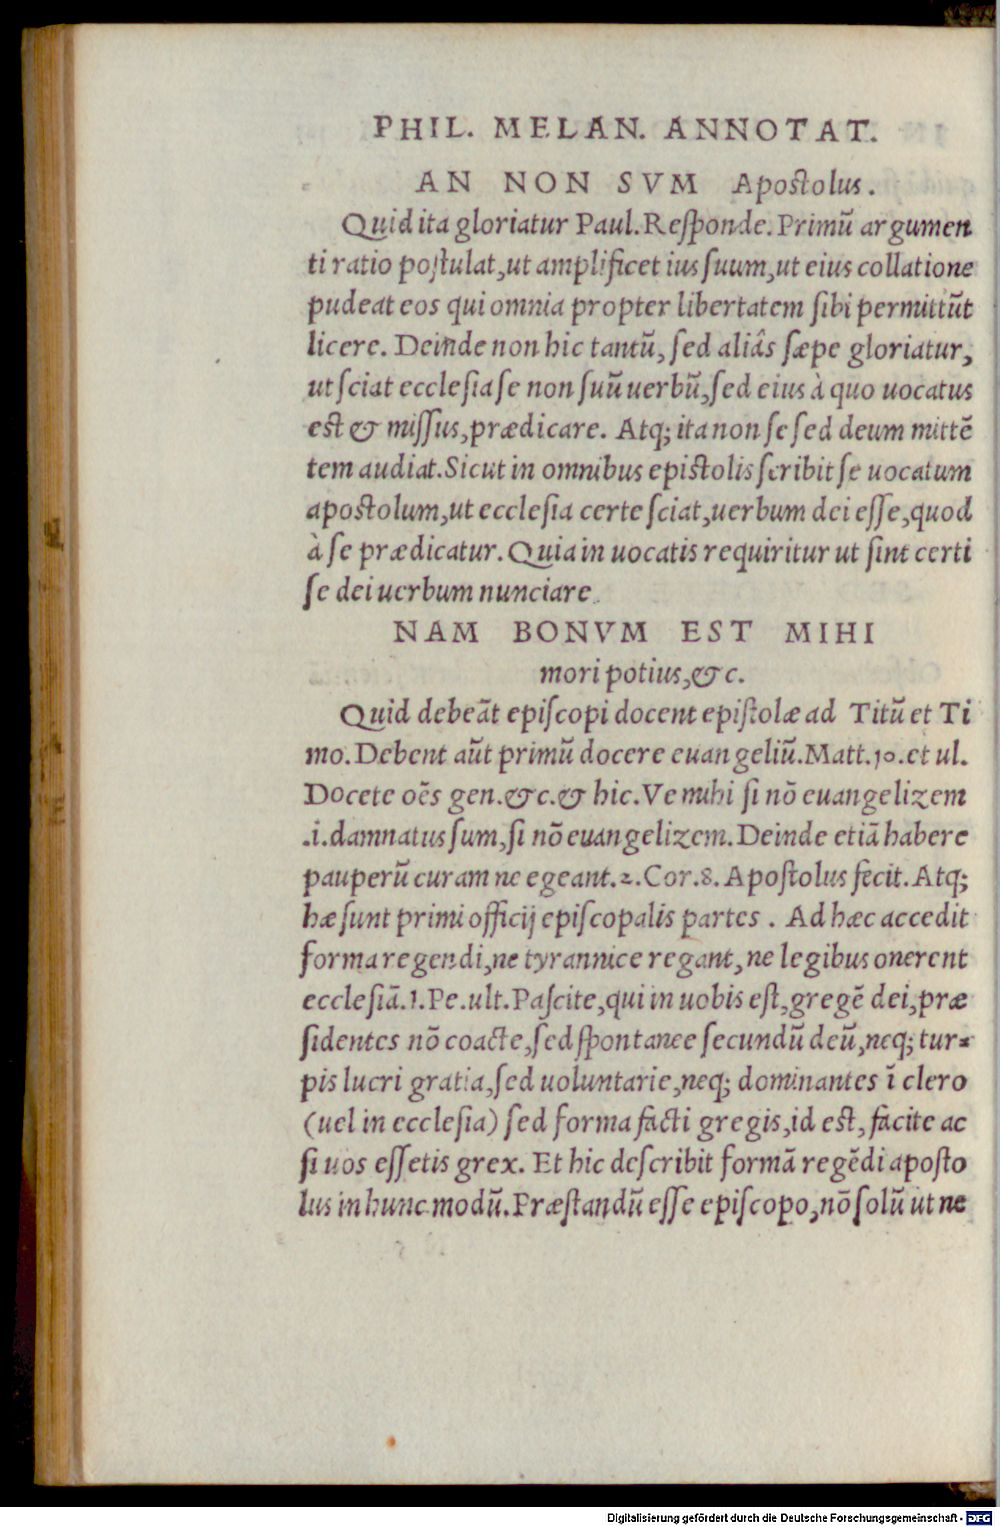 PHIL. MELAN. ANNOTAT.
AN NON SVM Apostolus.
Quid ita gloriatur Paul. Responde. Primũ argumen
ti ratio postulat, ut amplificet ius suum, ut eius collatione
pudeat eos qui omnia propter libertatem sibi permittũt
licere. Deinde non hic tantũ, sed aliâs sæpe gloriatur,
ut sciat ecclesia se non suũ uerbũ, sed eius à quo uocatus
est & missus, prædicare. Atq; ita non se sed deum mittẽ
tem audiat. Sicut in omnibus epistolis scribit se uocatum
apostolum, ut ecclesia certe sciat, uerbum dei esse, quod
à se prædicatur. Quia in uocatis requiritur ut sint certi
se dei uerbum nunciare.
NAM BONVM EST MIHI
mori potius, &c.
Quid debeãt episcopi docent epistolæ ad Titũ et Ti
mo. Debent aũt primũ docere euangeliũ. Matt. 10. et ul.
Docete oẽs gen. &c. & hic. Ve mihi si nõ euangelizem
.i. damnatus sum, si nõ euangelizem. Deinde etiã habere
pauperũ curam ne egeant. 2. Cor. 8. Apostolus fecit. Atq;
hæ sunt primi officij episcopalis partes. Ad hæc accedit
forma regendi, ne tyrannice regant, ne legibus onerent
ecclesiã. 1. Pe. ult. Pascite, qui in uobis est, gregẽ dei, præ
sidentes nõ coacte, sed spontanee secundũ deũ, neq; tur-
pis lucri gratia, sed uoluntarie, neq; dominantes ĩ clero
(uel in ecclesia) sed forma facti gregis, id est, facite ac
si uos essetis grex. Et hic describit formã regẽdi aposto
lus in hunc modũ. Præstandũ esse episcopo, nõ solũ ut ne
Digitalisierung gefördert durch die Deutsche Forschungsgemeinschaft - DFG